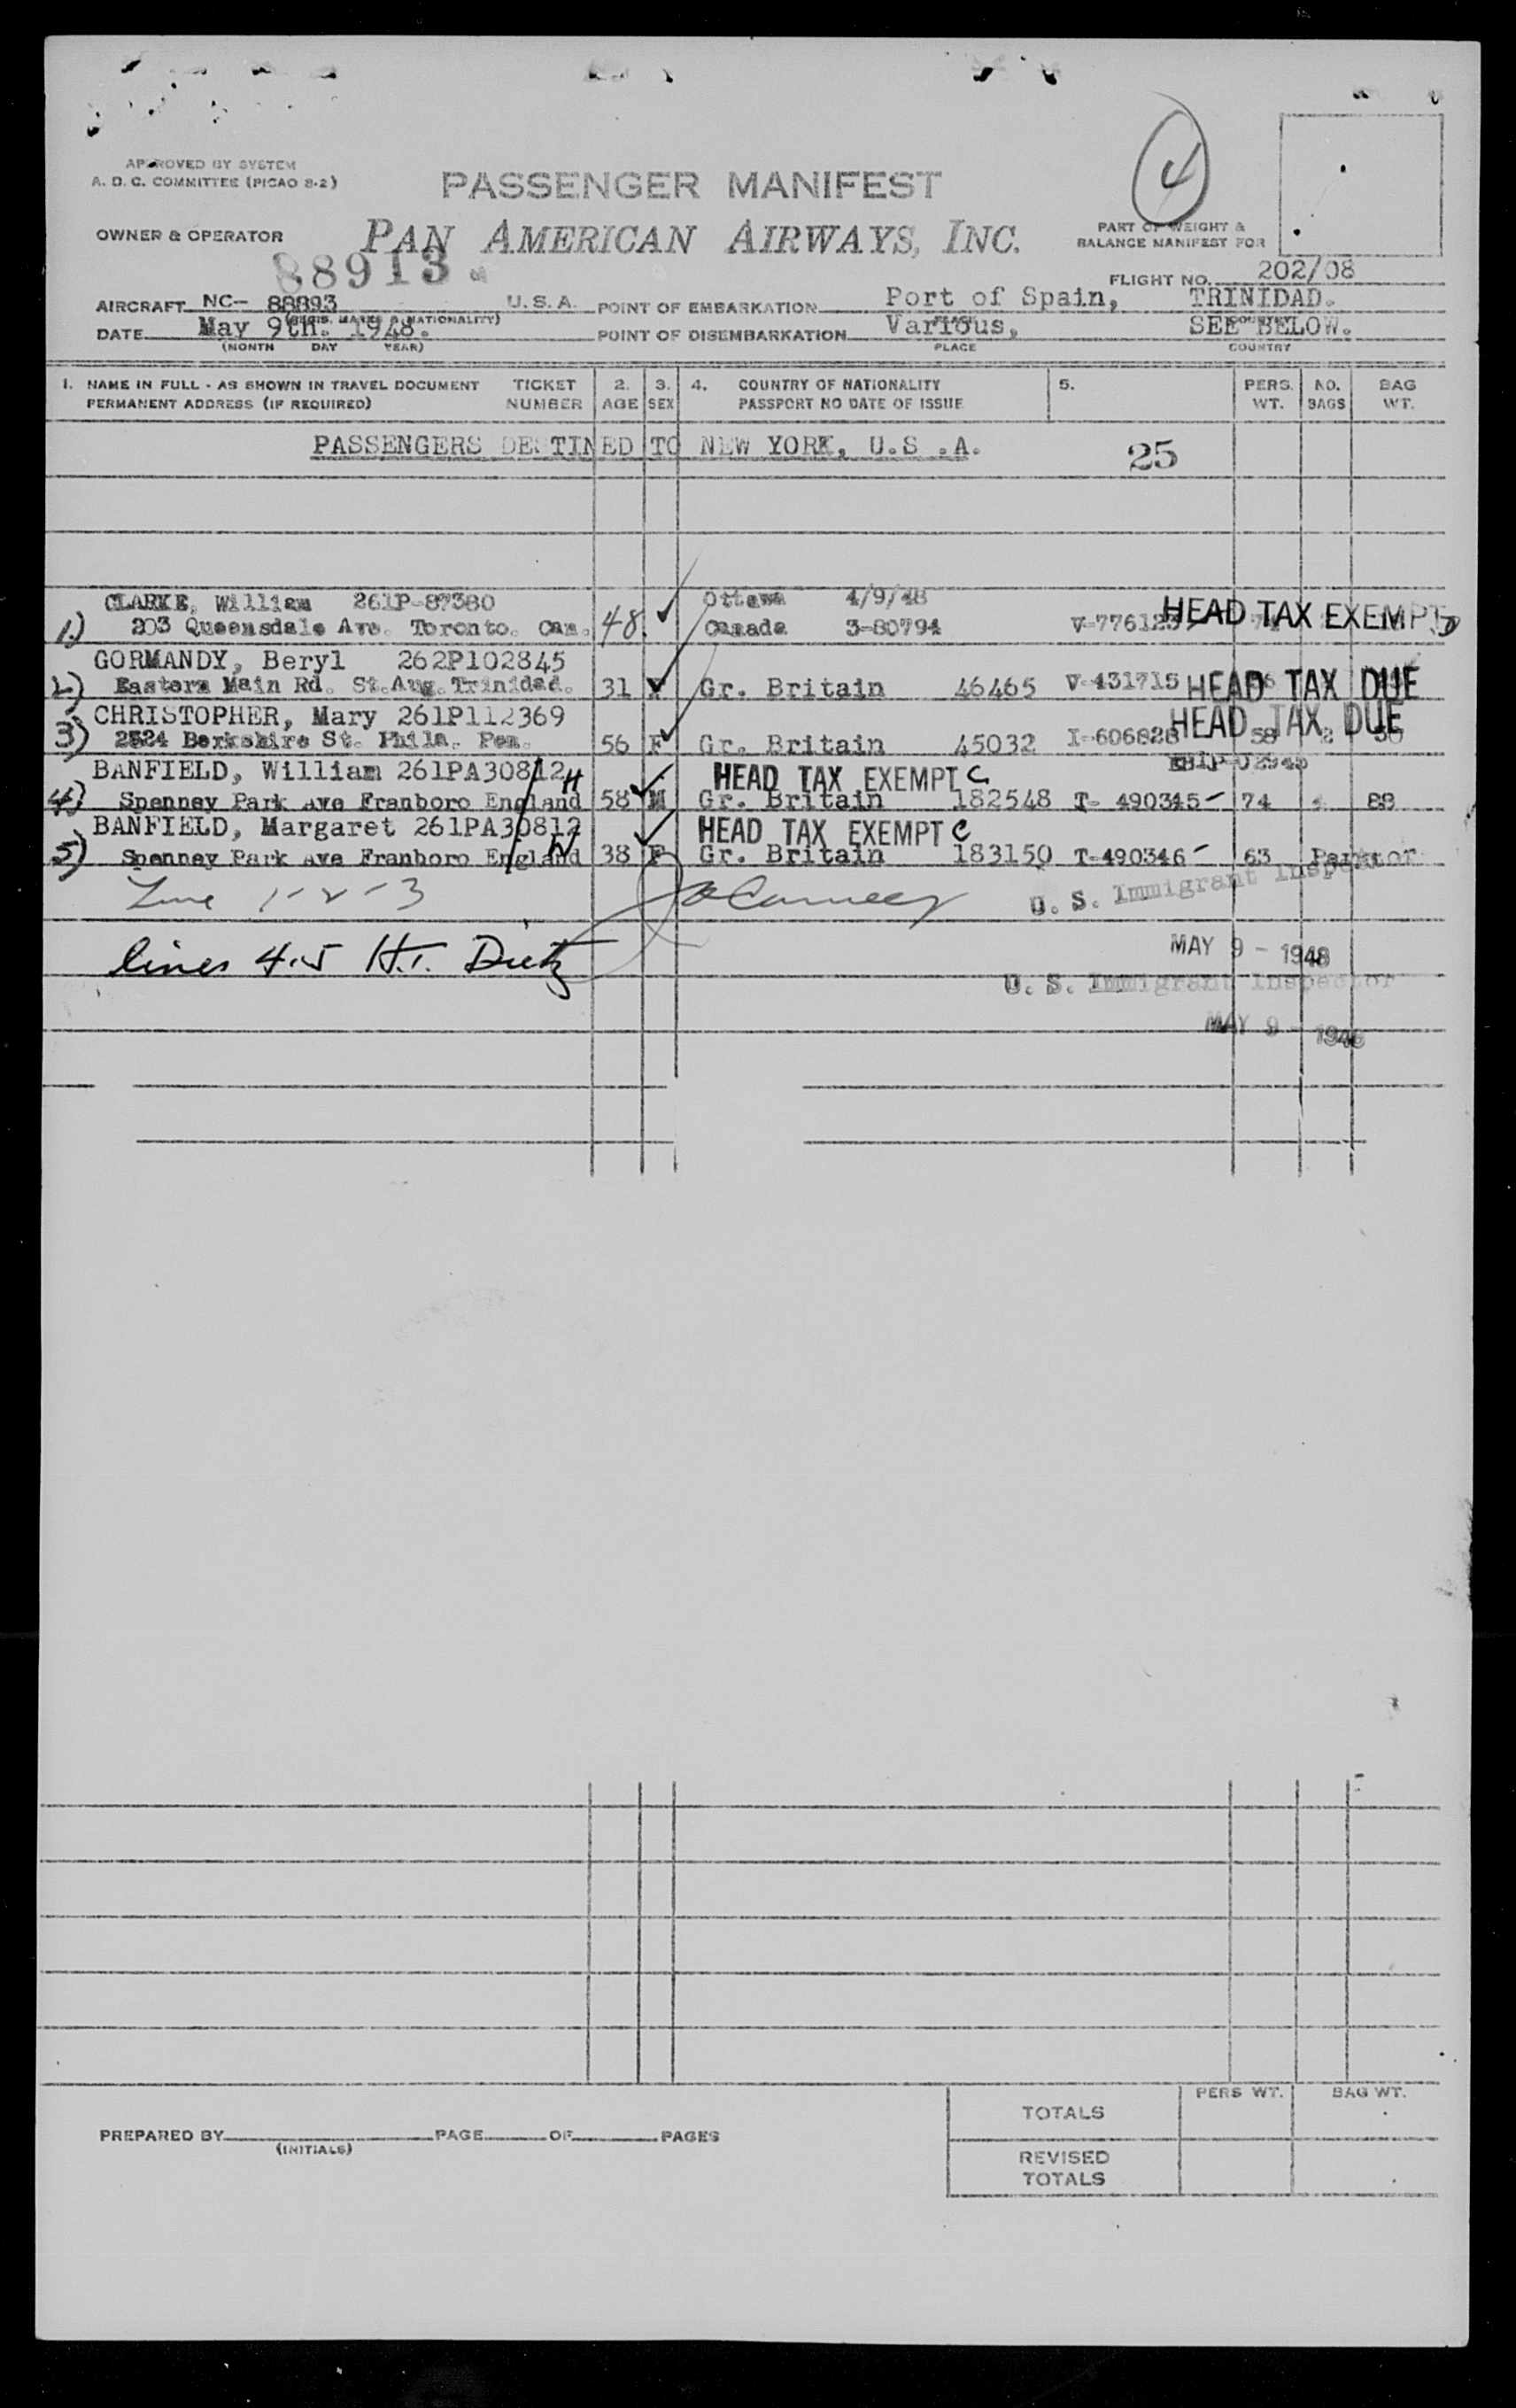 4
APPROVED BY SYSTEM
A. D. C. COMMITTEE (PICAO 8-2)
PASSENGER MANIFEST
OWNER & OPERATOR PAN AMERICAN AIRWAYS, INC.
PART OF WEIGHT &
BALANCE MANIFEST FOR
88913
FLIGHT NO. 202/08
AIRCRAFT NC- 88893 U.S.A. POINT OF EMBARKATION Port of Spain, TRINIDAD.
(REGIS. MARKS & NATIONALITY) PLACE COUNTRY
DATE May 9th. 1948. POINT OF DISEMBARKATION Various, SEE BELOW.
(MONTH DAY YEAR) PLACE COUNTRY
1. NAME IN FULL - AS SHOWN IN TRAVEL DOCUMENT TICKET 2. 3. 4. COUNTRY OF NATIONALITY 5. PERS. NO. BAG
PERMANENT ADDRESS (IF REQUIRED) NUMBER AGE SEX PASSPORT NO DATE OF ISSUE WT. BAGS WT.
PASSENGERS DESTINED TO NEW YORK, U.S .A. 25
CLARKE, William 261P-87380 Ottawa 4/9/48
1.) 203 Queensdale Ave. Toronto. Can. 48 Canada 3-80794 HEAD TAX EXEMPT
GORMANDY, Beryl 262P102845
2) Eastern Main Rd. St.Aug.Trinidad. 31 Gr. Britain 46465 V-431715 HEAD TAX DUE
CHRISTOPHER, Mary 261P112369 HEAD TAX DUE
3) 2524 Berkshire St. Phila. Pen. 56 F Gr. Britain 45032 I-606828 58 2
BANFIELD, William 261PA30812 H HEAD TAX EXEMPT C
4) Spenney Park Ave Franboro England 58 M Gr. Britain 182548 T- 490345 - 74 88
BANFIELD, Margaret 261PA30812 W HEAD TAX EXEMPT C
5) Spenney Park Ave Franboro England 38 F Gr. Britain 183150 T-490346 - 63
Line 1-2-3 U. S. Immigrant Inspector
lines 4.5 H.T. Dietz MAY 9 - 1948
U. S. Immigrant Inspector
MAY 9 - 1948
PERS WT. BAG WT.
TOTALS
PREPARED BY PAGE OF PAGES
(INITIALS)
REVISED
TOTALS